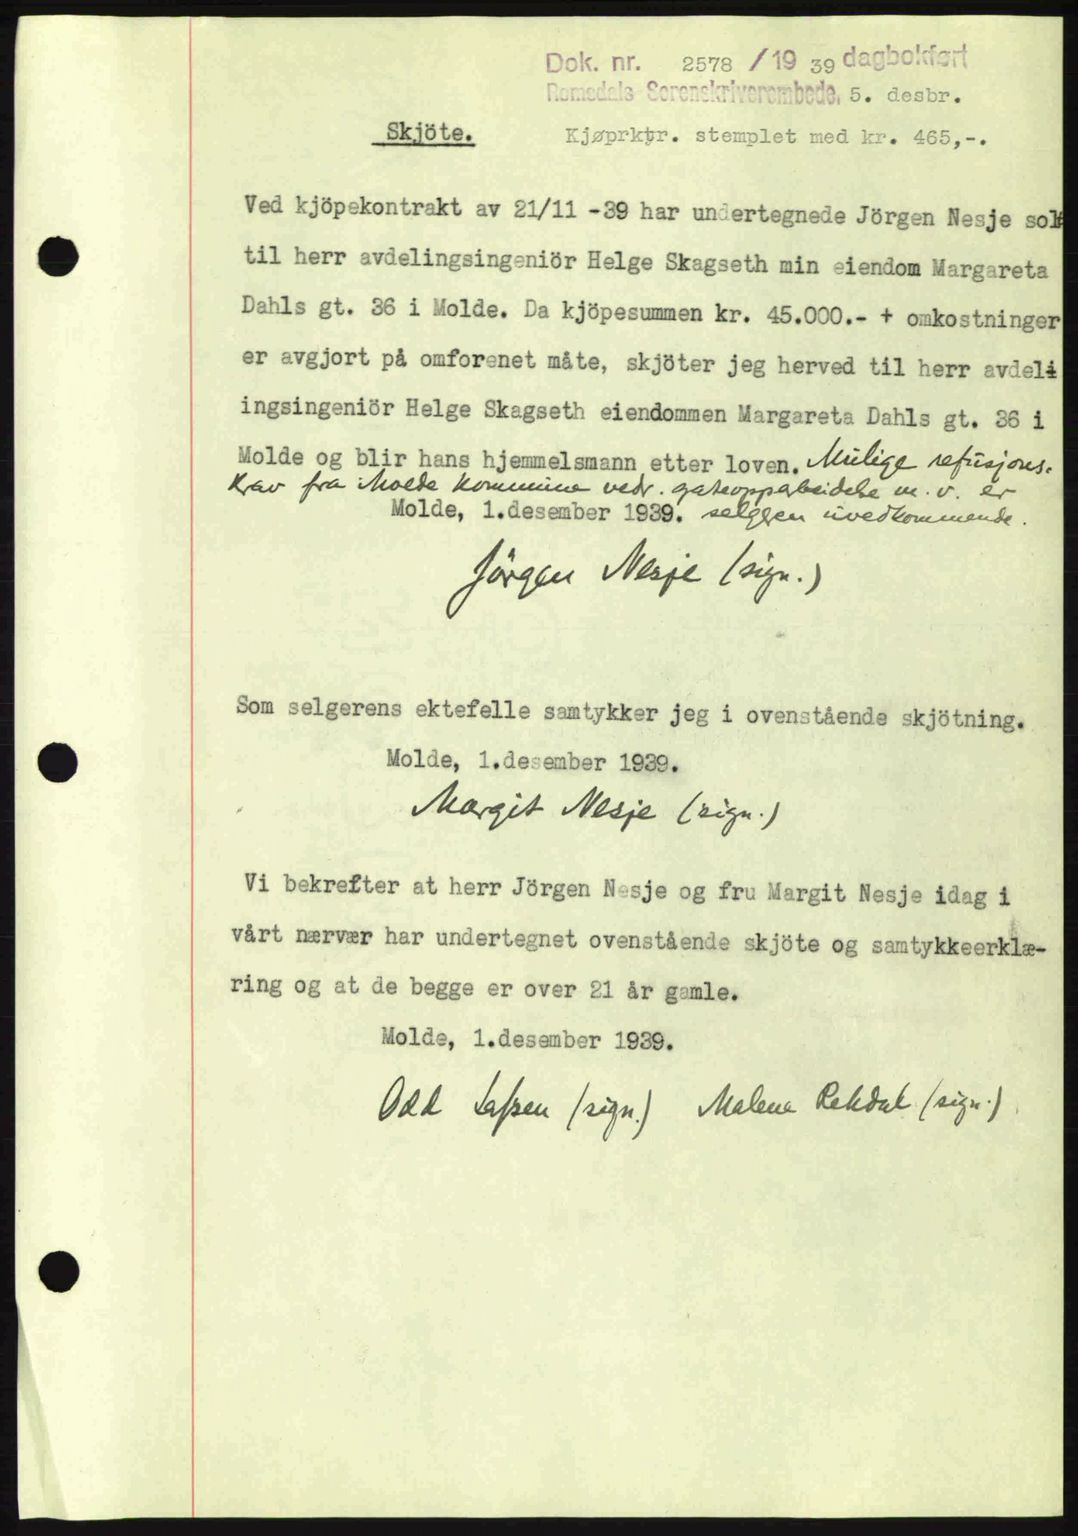 Dok. nr. 2578 / 19 39 dagbokført
Romsdals Sorenskriverembede, 5. desbr.
Skjöte.
Kjøprktr. stemplet med kr. 465,-.
Ved kjöpekontrakt av 21/11 -39 har undertegnede Jörgen Nesje solt
til herr avdelingsingeniör Helge Skagseth min eiendom Margareta
Dahls gt. 36 i Molde. Da kjöpesummen kr. 45.000.- + omkostninger
er avgjort på omforenet måte, skjöter jeg herved til herr avdel-
ingsingeniör Helge Skagseth eiendommen Margareta Dahls gt. 36 i
Molde og blir hans hjemmelsmann etter loven. Mulige refusjons-
krav fra Molde kommune vedr. gateopparbeidelse m.v. er
Molde, 1.desember 1939. selgeren uvedkommende.
Jörgen Nesje (sign.)
Som selgerens ektefelle samtykker jeg i ovenstående skjötning.
Molde, 1.desember 1939.
Margit Nesje (sign.)
Vi bekrefter at herr Jörgen Nesje og fru Margit Nesje idag i
vårt nærvær har undertegnet ovenstående skjöte og samtykkeerklæ-
ring og at de begge er over 21 år gamle.
Molde, 1.desember 1939.
Odd (sign.) Malena Rekdal (sign.)